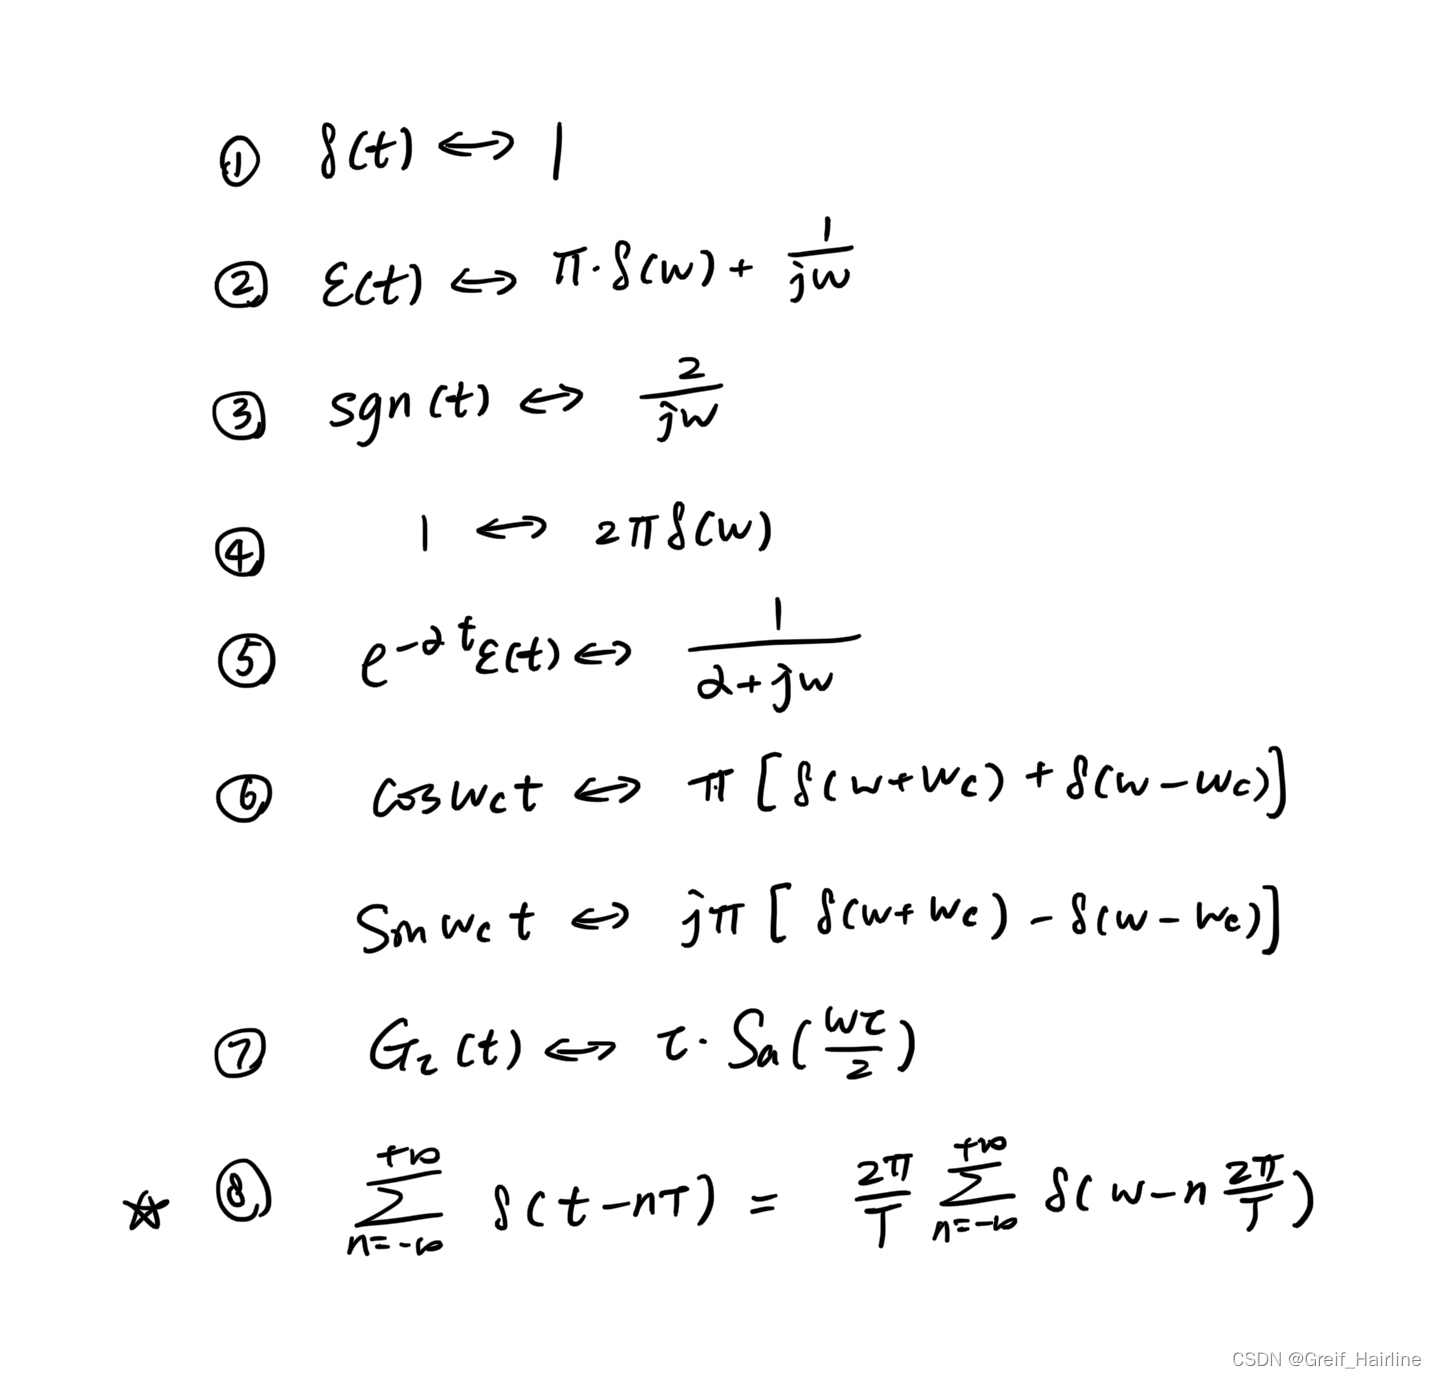 ① δ(t) ↔ 1
② ε(t) ↔ π·δ(w) + 1/jw
③ sgn(t) ↔ 2/jw
④ 1 ↔ 2πδ(w)
⑤ e^{-αt}ε(t) ↔ 1/(α+jw)
⑥ cos w_c t ↔ π[δ(w+w_c) + δ(w-w_c)]
Sin w_c t ↔ jπ[δ(w+w_c) - δ(w-w_c)]
⑦ G_τ(t) ↔ τ·Sa(wτ/2)
☆ ⑧ ∑_{n=-∞}^{+∞} δ(t-nT) = 2π/T ∑_{n=-∞}^{+∞} δ(w-n 2π/T)
CSDN @Greif_Hairline